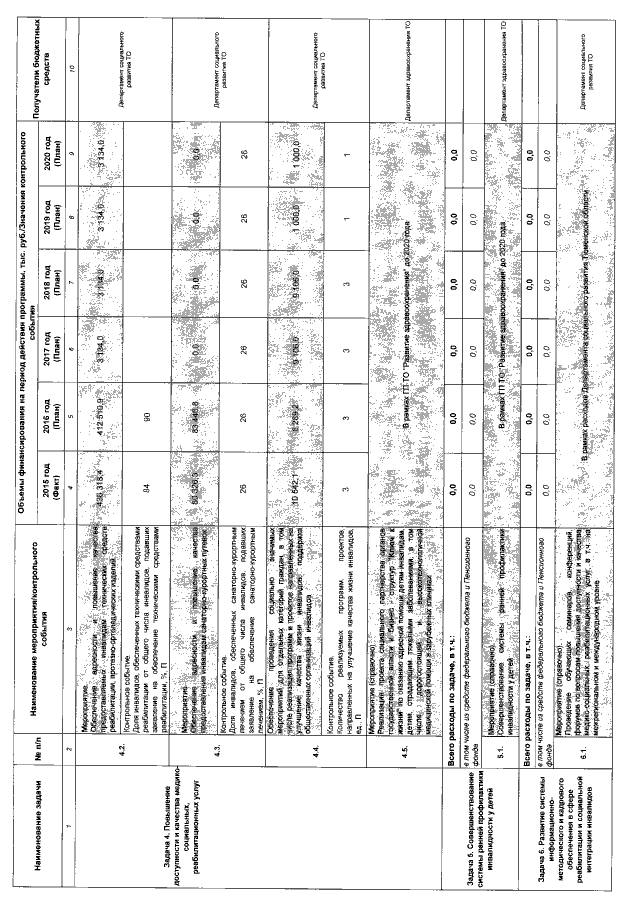 Наименование задачи
№ п/п
Наименование мероприятия/контрольного события
Объемы финансирования на период действия программы, тыс. руб./Значения контрольного события
Получатели бюджетных средств
2015 год (Факт)
2016 год (План)
2017 год (План)
2018 год (План)
2019 год (План)
2020 год (План)
1 2 3 4 5 6 7 8 9 10
Задача 4. Повышение
доступности и качества медико-
социальных,
реабилитационных услуг
4.2.
Мероприятие.
Обеспечение адресности и повышение качества
предоставляемых инвалидам технических средств
реабилитации, протезно-ортопедических изделий
412 510,9 3 134,0 3 134,0
Департамент социального
развития ТО
Контрольное событие.
Доля инвалидов, обеспеченных техническими средствами
реабилитации от общего числа инвалидов, подавших
заявление на обеспечение техническими средствами
реабилитации, %, П
84 90
4.3.
Мероприятие.
Обеспечение адресности и повышение качества
предоставления инвалидам санаторно-курортных путевок
0,0 0,0 0,0 0,0
Департамент социального
развития ТО
Контрольное событие.
Доля инвалидов, обеспеченных санаторно-курортным
лечением от общего числа инвалидов подавших
заявление на обеспечение санаторно-курортным
лечением, %, П
26 26 26 26 26 26
4.4.
Обеспечение проведения социально значимых
мероприятий для отдельных категорий граждан, в том
числе реализация программ и проектов направленных на
улучшение качества жизни инвалидов, поддержка
общественных организаций инвалидов
10 542,1 9 106,0 9 106,0 1 000,0 1 000,0
Департамент социального
развития ТО
Контрольное событие.
Количество реализуемых программ, проектов,
направленных на улучшение качества жизни инвалидов,
ед., П
3 3 3 3 1 1
4.5.
Мероприятие (справочно).
Реализация проекта социального партнерства органов
государственной власти и бизнес - структур "Ключ к
жизни" по оказанию адресной помощи детям-инвалидам,
детям, страдающим тяжелыми заболеваниями, в том
числе дорогостоящей и высокотехнологичной
медицинской помощи в зарубежных клиниках
В рамках ГП ТО "Развитие здравоохранения" до 2020 года
Департамент здравоохранения ТО
Задача 5. Совершенствование
системы ранней профилактики
инвалидности у детей
Всего расходы по задаче, в т.ч.:
0,0 0,0 0,0 0,0 0,0 0,0
в том числе из средств федерального бюджета и Пенсионного
фонда
0,0 0,0 0,0 0,0 0,0 0,0
5.1.
Мероприятие (справочно).
Совершенствование системы ранней профилактики
инвалидности у детей
В рамках ГП ТО "Развитие здравоохранения" до 2020 года
Департамент здравоохранения ТО
Задача 6. Развитие системы
информационно-
методического и кадрового
обеспечения в сфере
реабилитации и социальной
интеграции инвалидов
Всего расходы по задаче, в т.ч.:
0,0 0,0 0,0 0,0 0,0 0,0
в том числе из средств федерального бюджета и Пенсионного
фонда
0,0 0,0 0,0 0,0 0,0 0,0
6.1.
Мероприятие (справочно).
Проведение обучающих семинаров, конференций,
форумов по вопросам повышения доступности и качества
медико-социальных, реабилитационных услуг, в т.ч. на
межрегиональном и международном уровне
В рамках расходов Департамента социального развития Тюменской области
Департамент социального
развития ТО